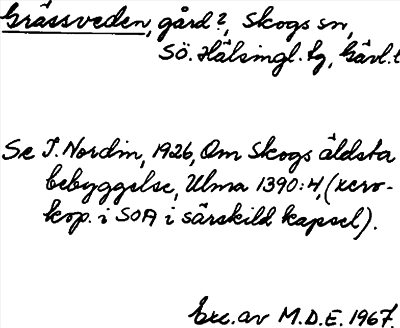 Grässveden, gård?, Skogs sn,
Sö. Hälsingl. tg, Gävl. l
Se J. Nordin, 1926, Om Skogs äldsta
bebyggelse, Ulma 1390:4, (xero-
kop. i SOA i särskild kapsel).
Exc. av M.D.E. 1967.